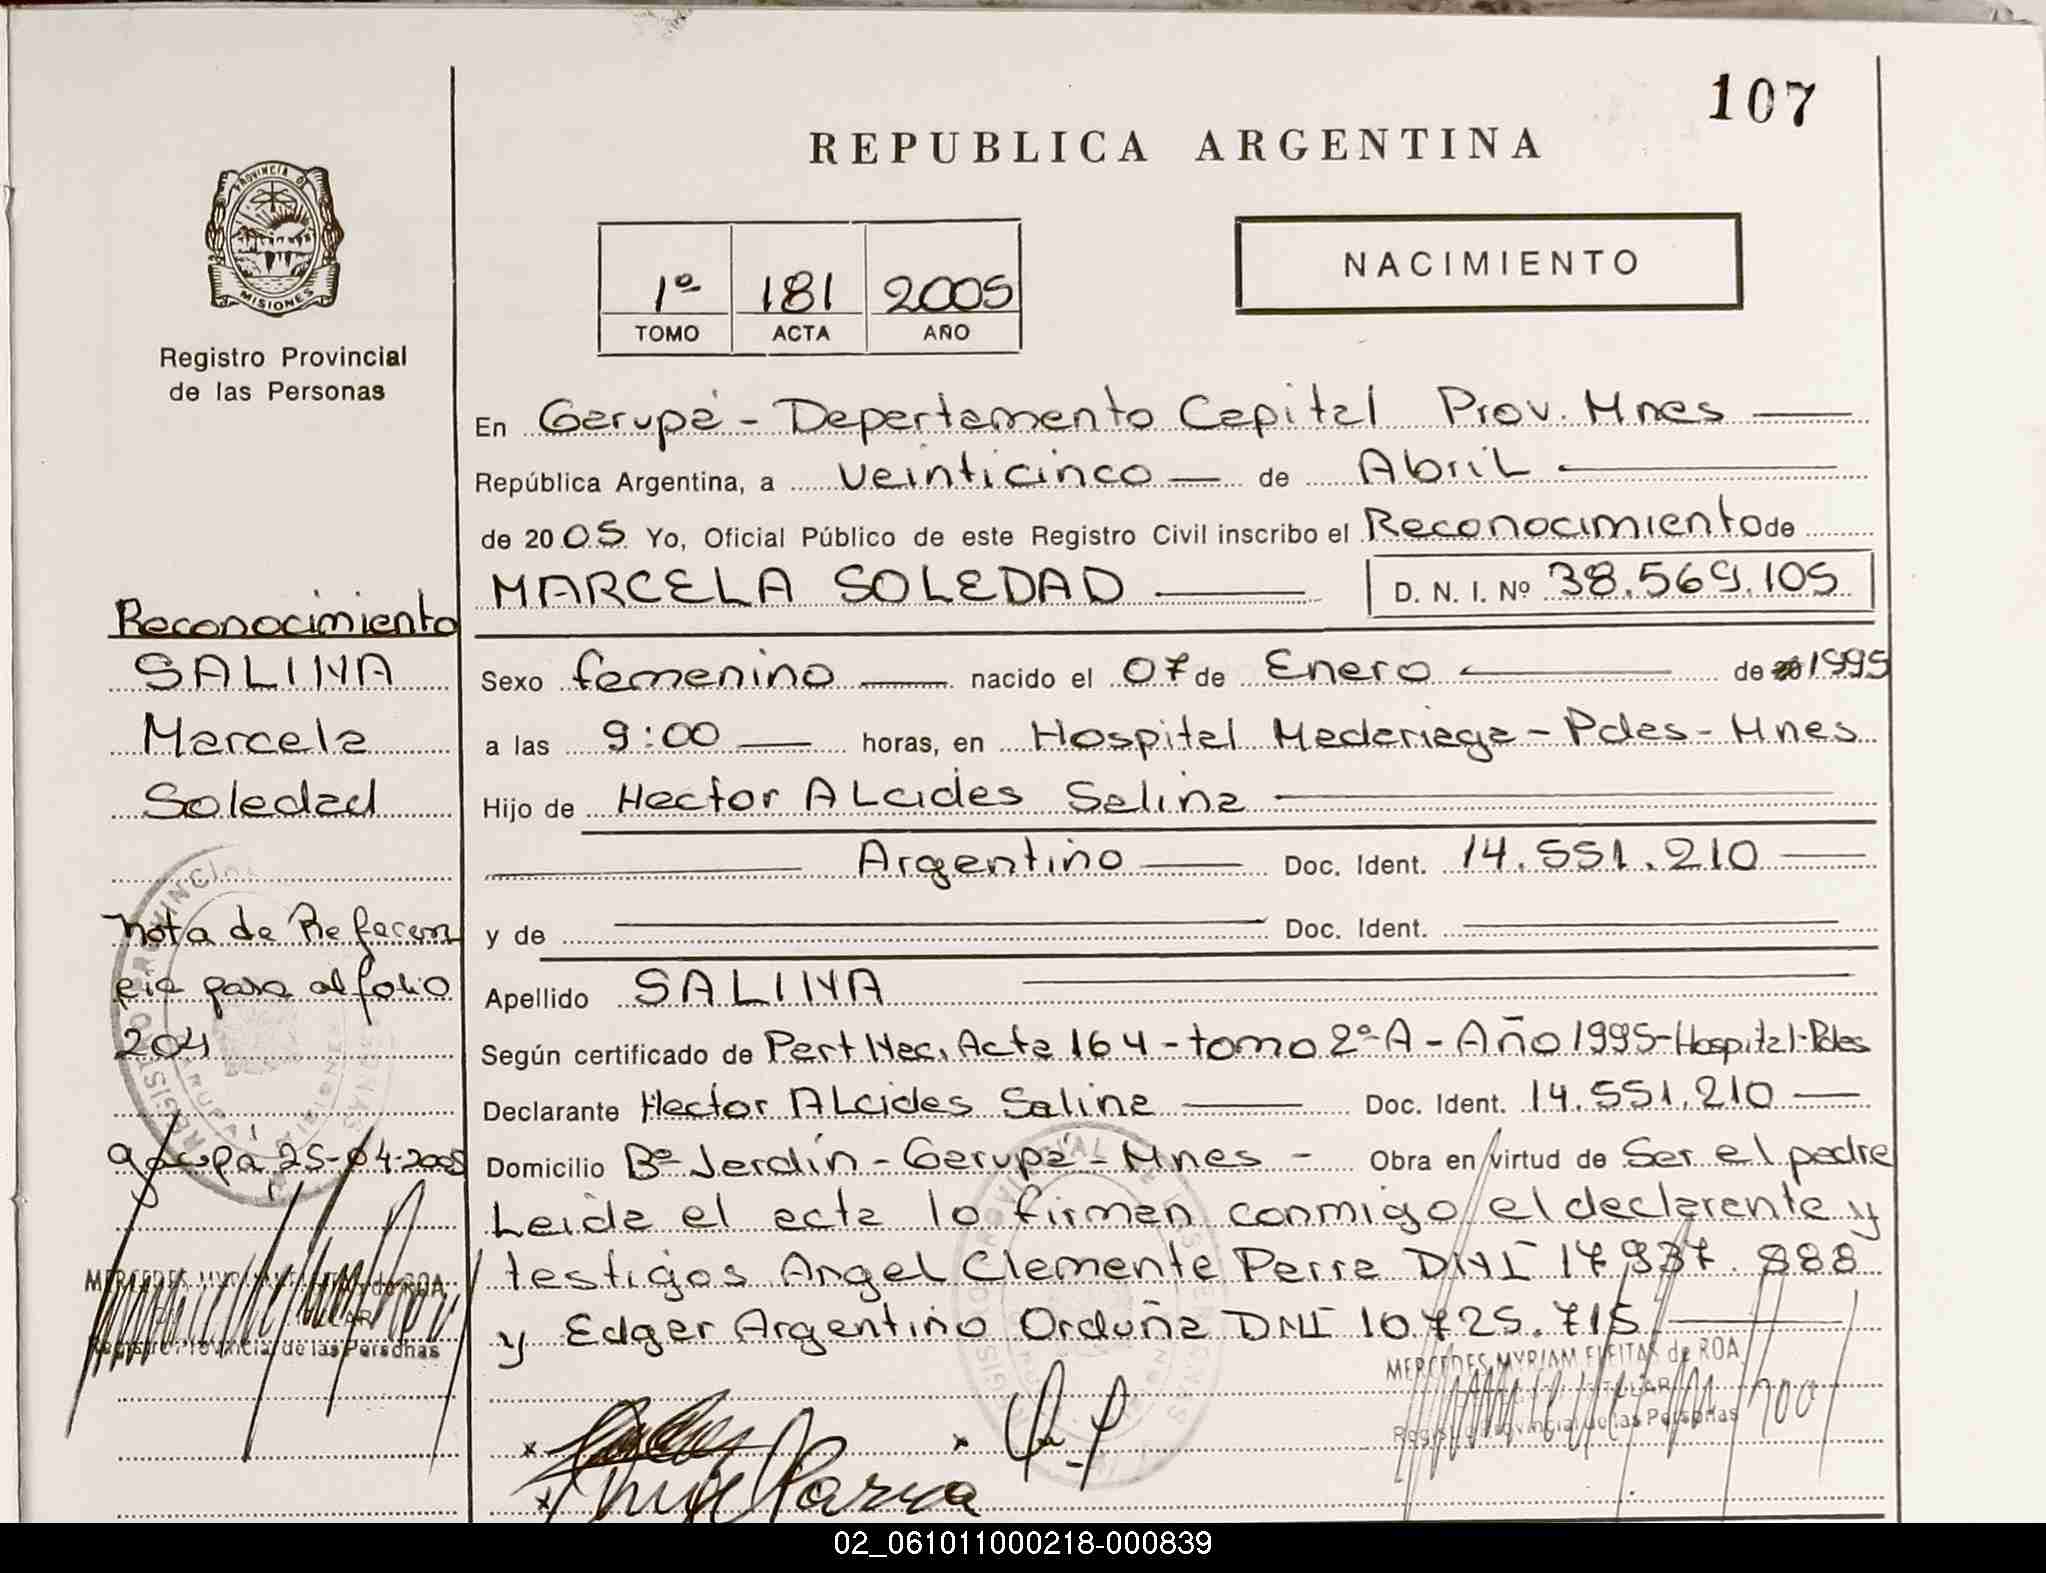 107
REPUBLICA ARGENTINA
PROVINCIA DE
MISIONES
Registro Provincial
de las Personas
1º 181 2005
TOMO ACTA AÑO
NACIMIENTO
En Garupá - Departamento Capital Prov. Mnes
República Argentina, a veinticinco de Abril
de 2005 Yo, Oficial Público de este Registro Civil inscribo el Reconocimiento de
MARCELA SOLEDAD D. N. I. Nº 38.569.105
Sexo femenino nacido el 07 de Enero de 1995
a las 9:00 horas, en Hospital Madariaga - Pdas - Mnes
Hijo de Hector Alcides Salina
Argentino Doc. Ident. 14.551.210
y de Doc. Ident.
Apellido SALINA
Según certificado de Part Nac. Acta 164 - tomo 2º A - Año 1995 - Hospital - Pdas
Declarante Hector Alcides Salina Doc. Ident. 14.551.210
Domicilio Bº Jardín - Garupá - Mnes - Obra en virtud de Ser el padre
Leida el acta lo firman conmigo el declarante y
testigos Angel Clemente Parra DNI 17.937.888
y Edgar Argentino Orduña DNI 10.725.715
MERCEDES MYRIAM FLEITAS de ROA
TITULAR
Registro Provincial de las Personas
x x
x Parra
Reconocimiento
SALINA
Marcela
Soledad
Nota de Referen
cia para al folio
204
Garupá 25-04-2005
MERCEDES MYRIAM FLEITAS de ROA
TITULAR
Registro Provincial de las Personas
02_061011000218-000839